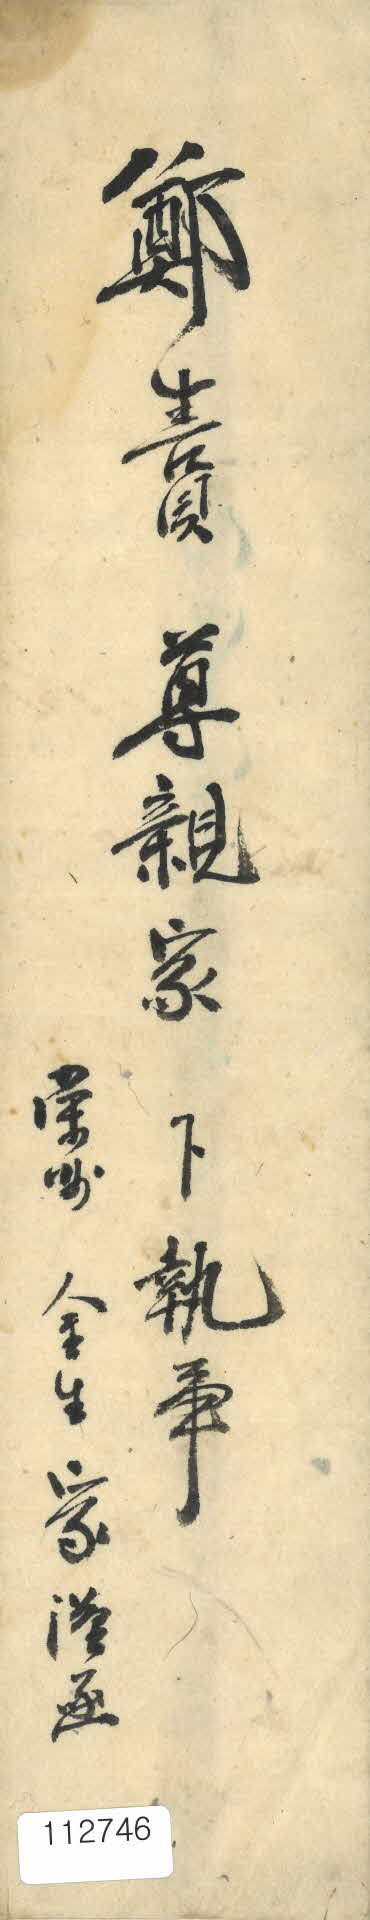 鄭生員 尊親家 下執事
金生 家 謹函
112746